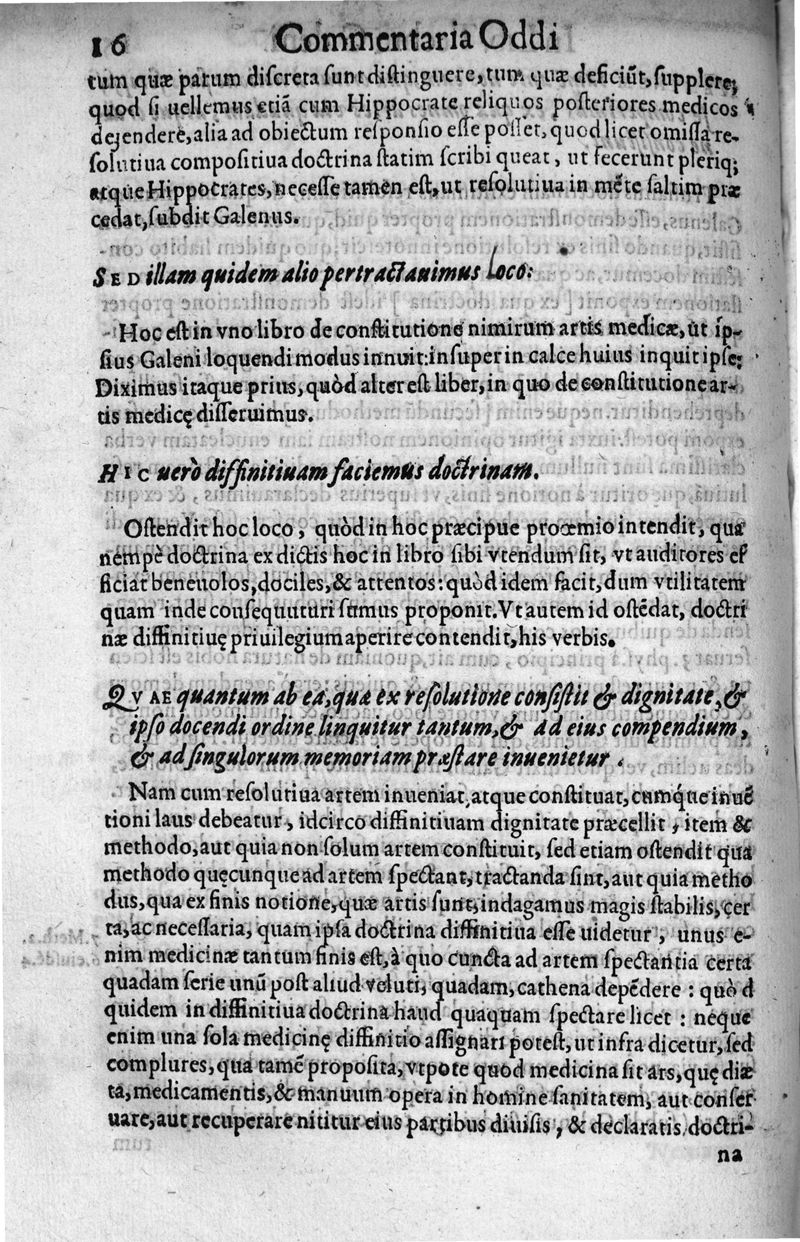 16 Commentaria Oddi
tum quæ parum discreta sunt distinguere, tum quæ deficiũt, supplere;
quod si uellemus etiã cum Hippocrate reliquos posteriores medicos
defendere, alia ad obiectum responsio esse posset, quod licet omissa re-
solutiua compositiua doctrina statim scribi queat, ut fecerunt pleriq;
atque Hippocrates, necesse tamen est, ut resolutiua in mẽte saltim præ
cedat, subdit Galenus.
SED illam quidem alio pertractauimus Loco:
Hoc est in vno libro de constitutione nimirum artis medicæ, ut ip-
sius Galeni loquendi modus innuit: insuper in calce huius inquit ipse;
Diximus itaque prius, quòd alter est liber, in quo de constitutione ar-
tis medicę disseruimus.
HIC uerò diffinitiuam faciemus doctrinam.
Ostendit hoc loco, quòd in hoc præcipue proœmio intendit, qua
nempè doctrina ex dictis hoc in libro sibi vtendum sit, vt auditores ef
ficiat beneuolos, dociles, & attentos: quòd idem facit, dum vtilitatem
quam inde consequuturi sumus proponit. Vt autem id ostẽdat, doctri
næ diffinitiuę priuilegium aperire contendit, his verbis.
QVAE quantum ab ea, qua ex resolutione consistit & dignitate, &
ipso docendi ordine linquitur tantum, & ad eius compendium,
& ad singulorum memoriam præstare inuenietur.
Nam cum resolutiua artem inueniat, atque constituat, cumq́ue inuẽ
tioni laus debeatur, idcirco diffinitiuam dignitate præcellit, item &
methodo, aut quia non solum artem constituit, sed etiam ostendit qua
methodo quęcunque ad artem spectant, tractanda sint, aut quia metho
dus, qua ex finis notione, quæ artis sunt, indagamus magis stabilis, cer
ta, ac necessaria, quam ipsa doctrina diffinitiua esse uidetur, unus e-
nim medicinæ tantum finis est, à quo cuncta ad artem spectantia certa
quadam serie unũ post aliud veluti, quadam, cathena depẽdere: quòd
quidem in diffinitiua doctrina haud quaquam spectare licet: neque
enim una sola medicinę diffinitio assignari potest, ut infra dicetur, sed
complures, qua tamẽ proposita, vtpote quod medicina sit ars, quę diæ
ta, medicamentis, & manuum opera in homine sanitatem, aut conser
uare, aut recuperare nititur eius partibus diuisis, & declaratis doctri-
na